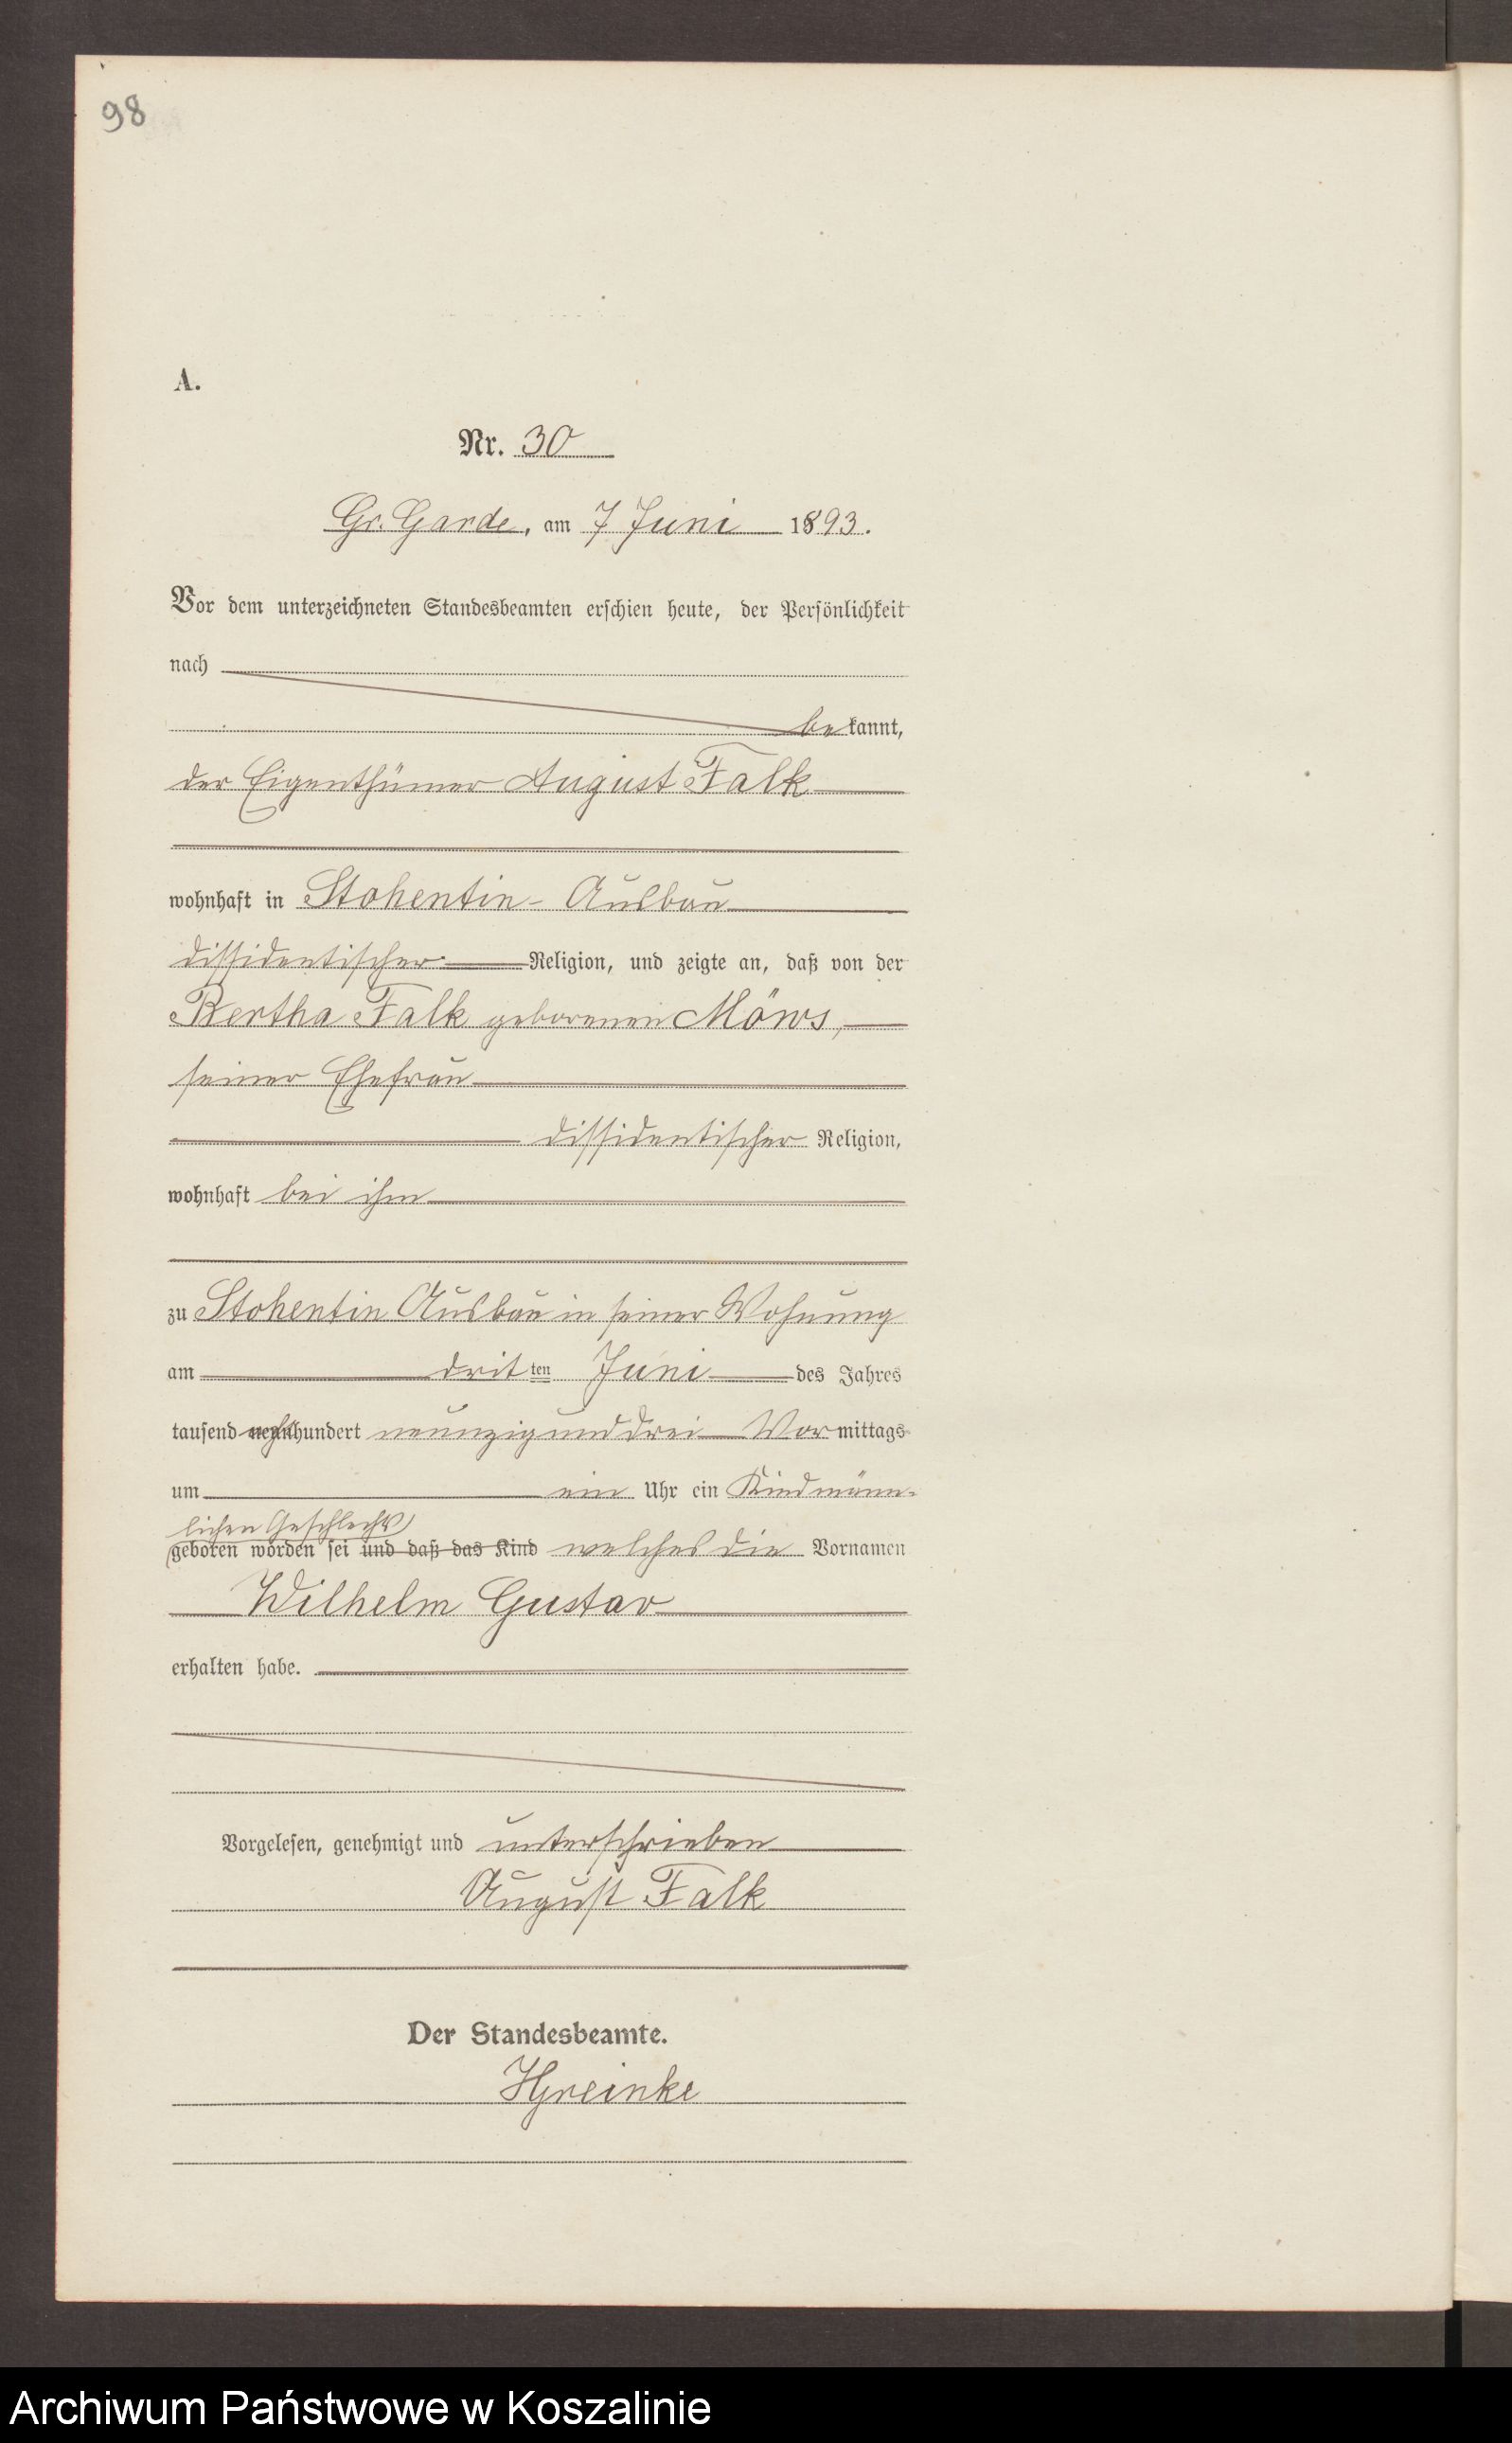 98
A.
Nr. 30
Gr. Garde, am 7 Juni 1893.
Vor dem unterzeichneten Standesbeamten erschien heute, der Persönlichkeit
nach
bekannt,
der Eigenthümer August Falk
wohnhaft in Stohentin - Ausbau
dissidentischer Religion, und zeigte an, daß von der
Bertha Falk geborenen Möws,
seiner Ehefrau
dissidentischer Religion,
wohnhaft bei ihm
zu Stohentin Ausbau in seiner Wohnung
am dritten Juni des Jahres
tausend hundert neunzig und drei Vormittags
um ein Uhr ein Kind männ-
lichen Geschlechts
geboren worden sei und daß das Kind welches die Vornamen
Wilhelm Gustav
erhalten habe.
Vorgelesen, genehmigt und unterschrieben
August Falk
Der Standesbeamte.
Archiwum Państwowe w Koszalinie